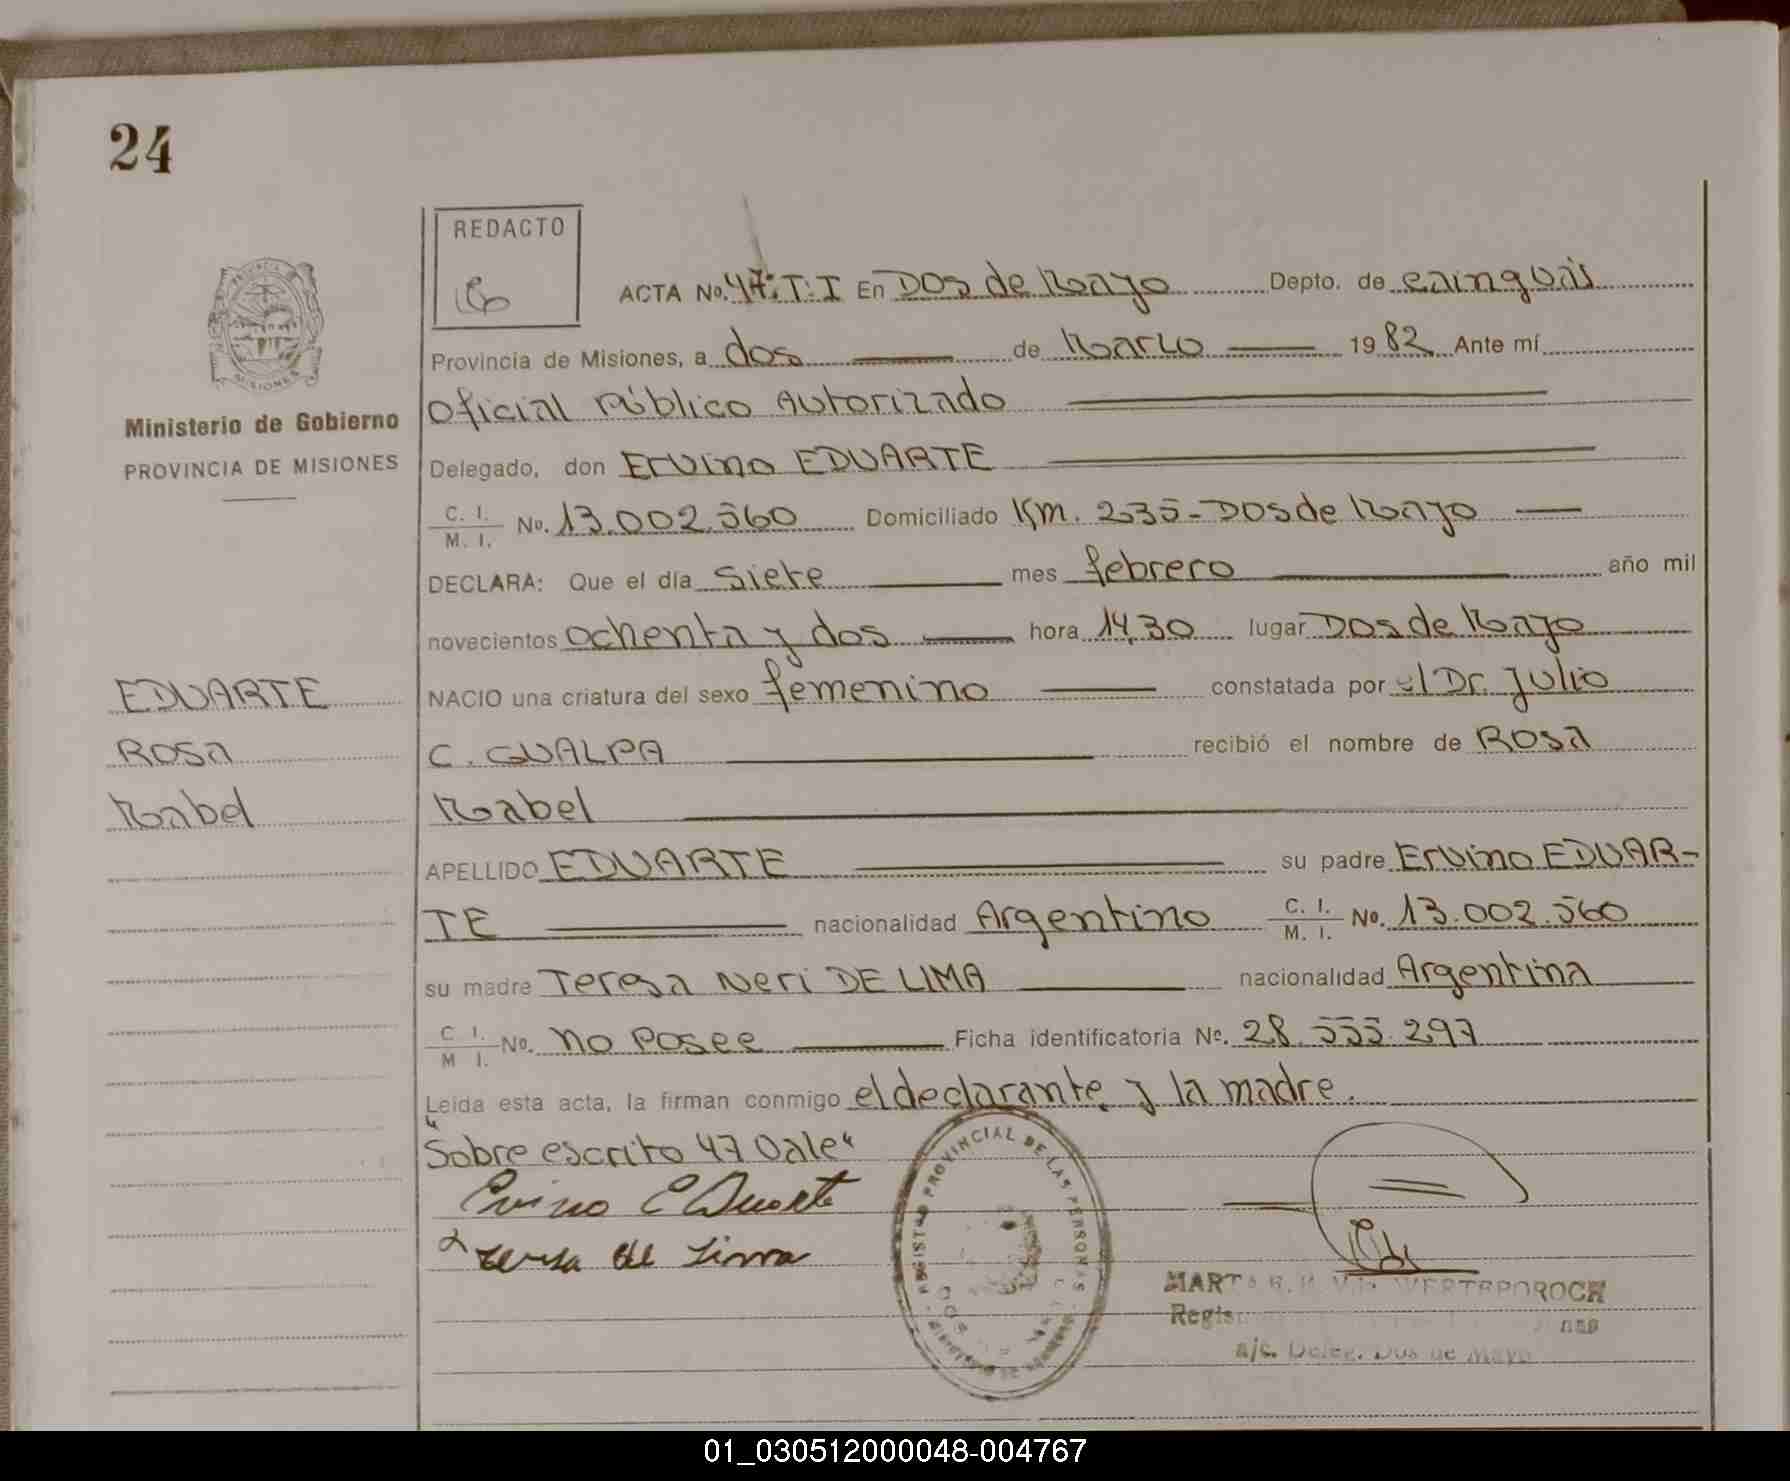 24
REDACTO
ACTA No. 47. T: I En Dos de Mayo Depto. de Cainguás
Provincia de Misiones, a dos de Marzo 1982 Ante mí
Ministerio de Gobierno
PROVINCIA DE MISIONES
Oficial Público Autorizado
Delegado, don Ervino EDUARTE
C. I. M. I. No. 13.002.560 Domiciliado Km. 235 - Dos de Mayo
DECLARA: Que el día siete mes febrero año mil
novecientos ochenta y dos hora 14,30 lugar Dos de Mayo
EDUARTE
NACIO una criatura del sexo femenino constatada por el Dr. Julio
Rosa
C. GUALPA recibió el nombre de Rosa
Mabel
Mabel
APELLIDO EDUARTE su padre Ervino EDUAR-
TE nacionalidad Argentino C. I. M. I. No. 13.002.560
su madre Teresa Neri DE LIMA nacionalidad Argentina
C I. M I. No. no posee Ficha identificatoria No. 28.555.297
Leída esta acta, la firman conmigo el declarante y la madre.
"Sobre escrito 47 Vale"
Ervino E Duarte
teresa de Lima
REGISTRO PROVINCIAL DE LAS PERSONAS
MARTA WERTEPOROCH
Regis
a/c. Deleg. Dos de Mayo
01_030512000048-004767